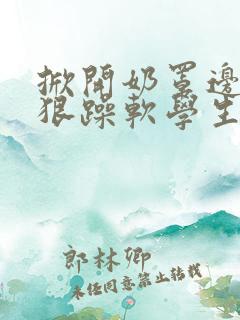 掀開奶罩邊
狠躁軟學生
郎林卿
未经同意禁止转载